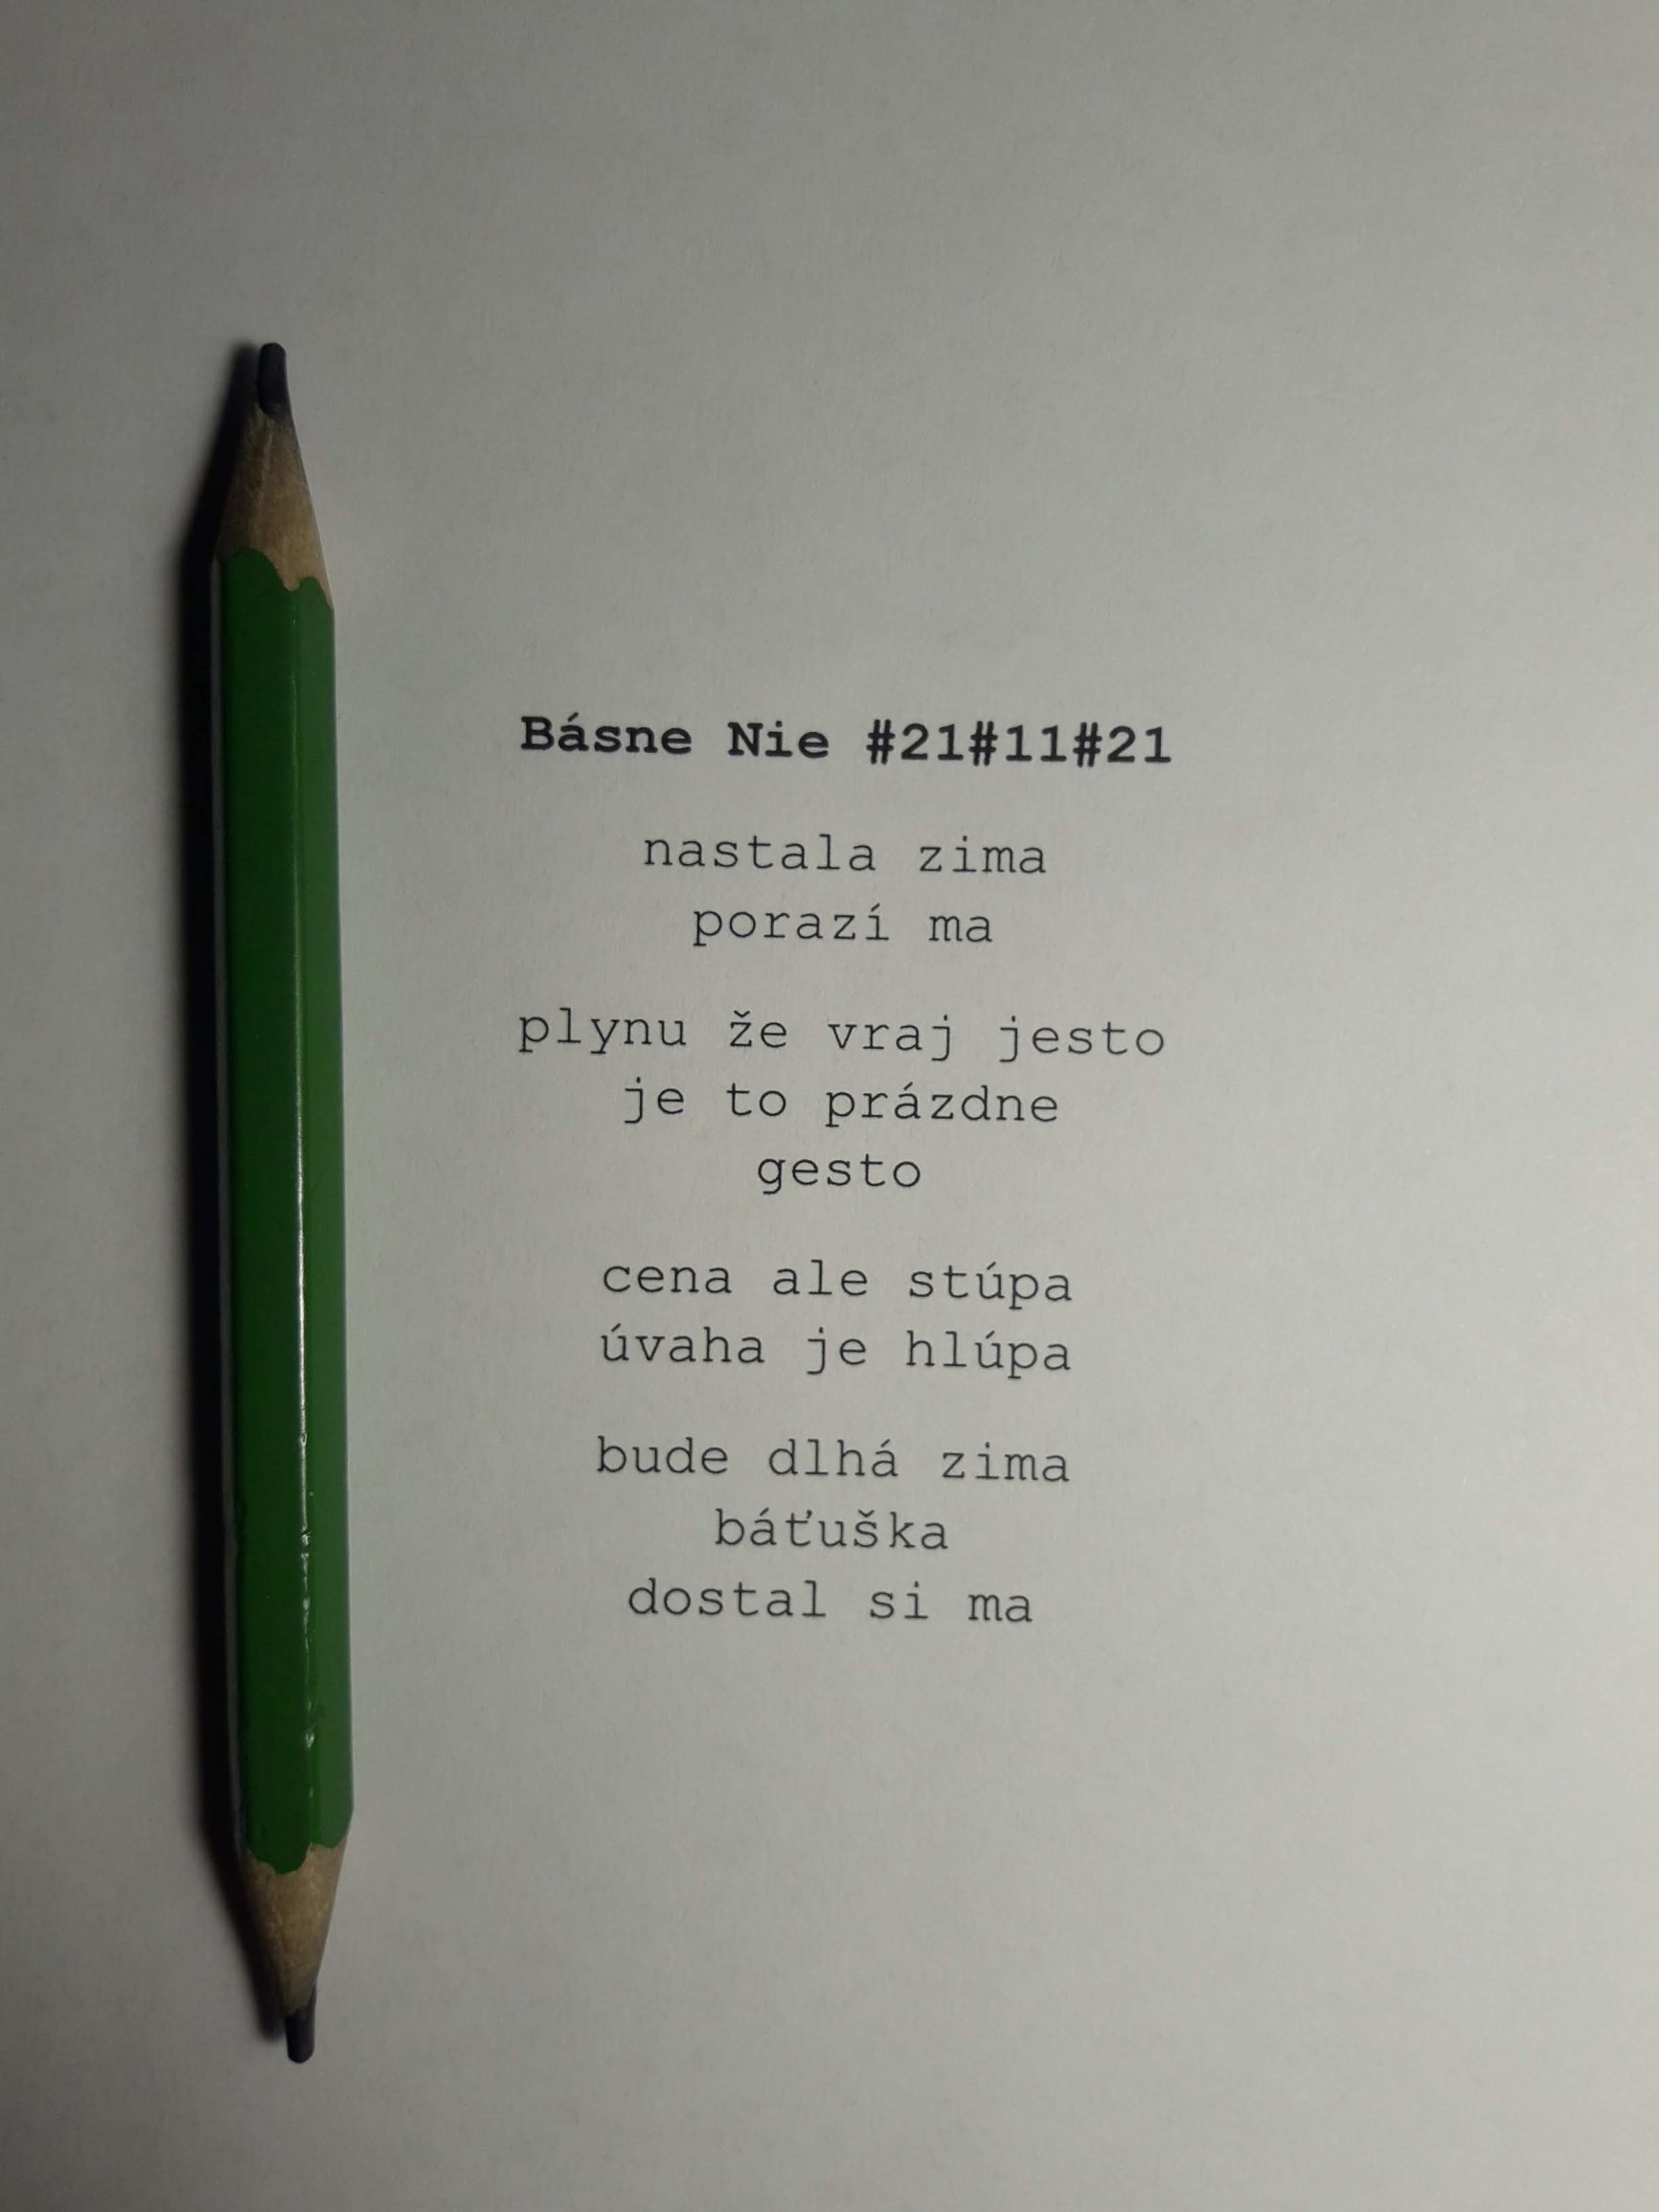 Básne Nie #21#11#21
nastala zima
porazí ma
plynu že vraj jesto
je to prázdne
gesto
cena ale stúpa
úvaha je hlúpa
bude dlhá zima
báťuška
dostal si ma